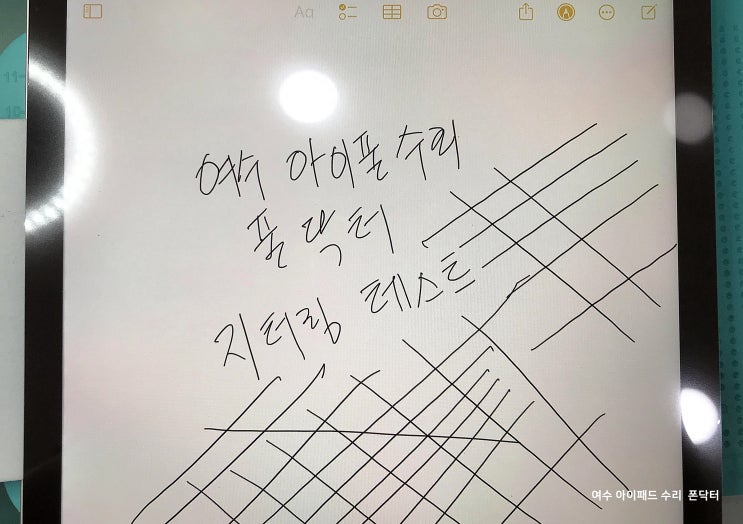 Aa
여수 아이폰수리
폰닥터
지터링 테스트
여수 아이패드 수리 폰닥터